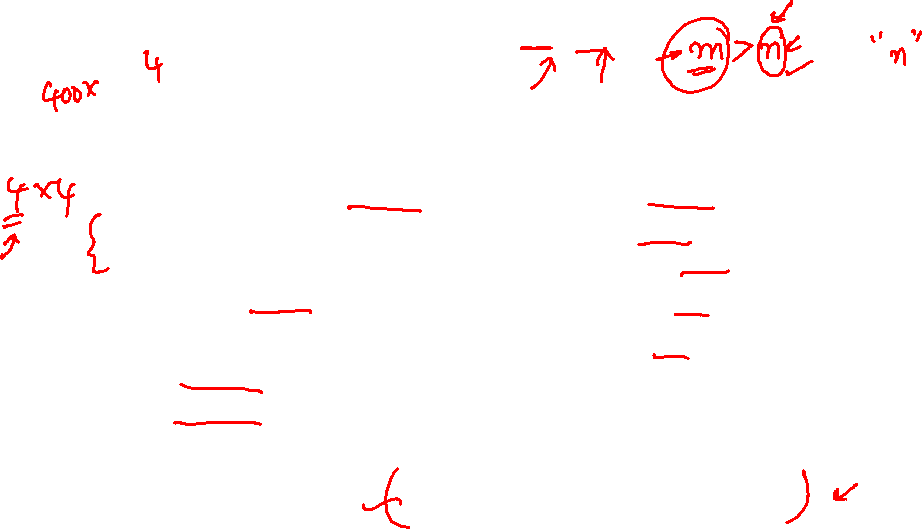 400x 4 m > n "n"
4 x 4
{
( )